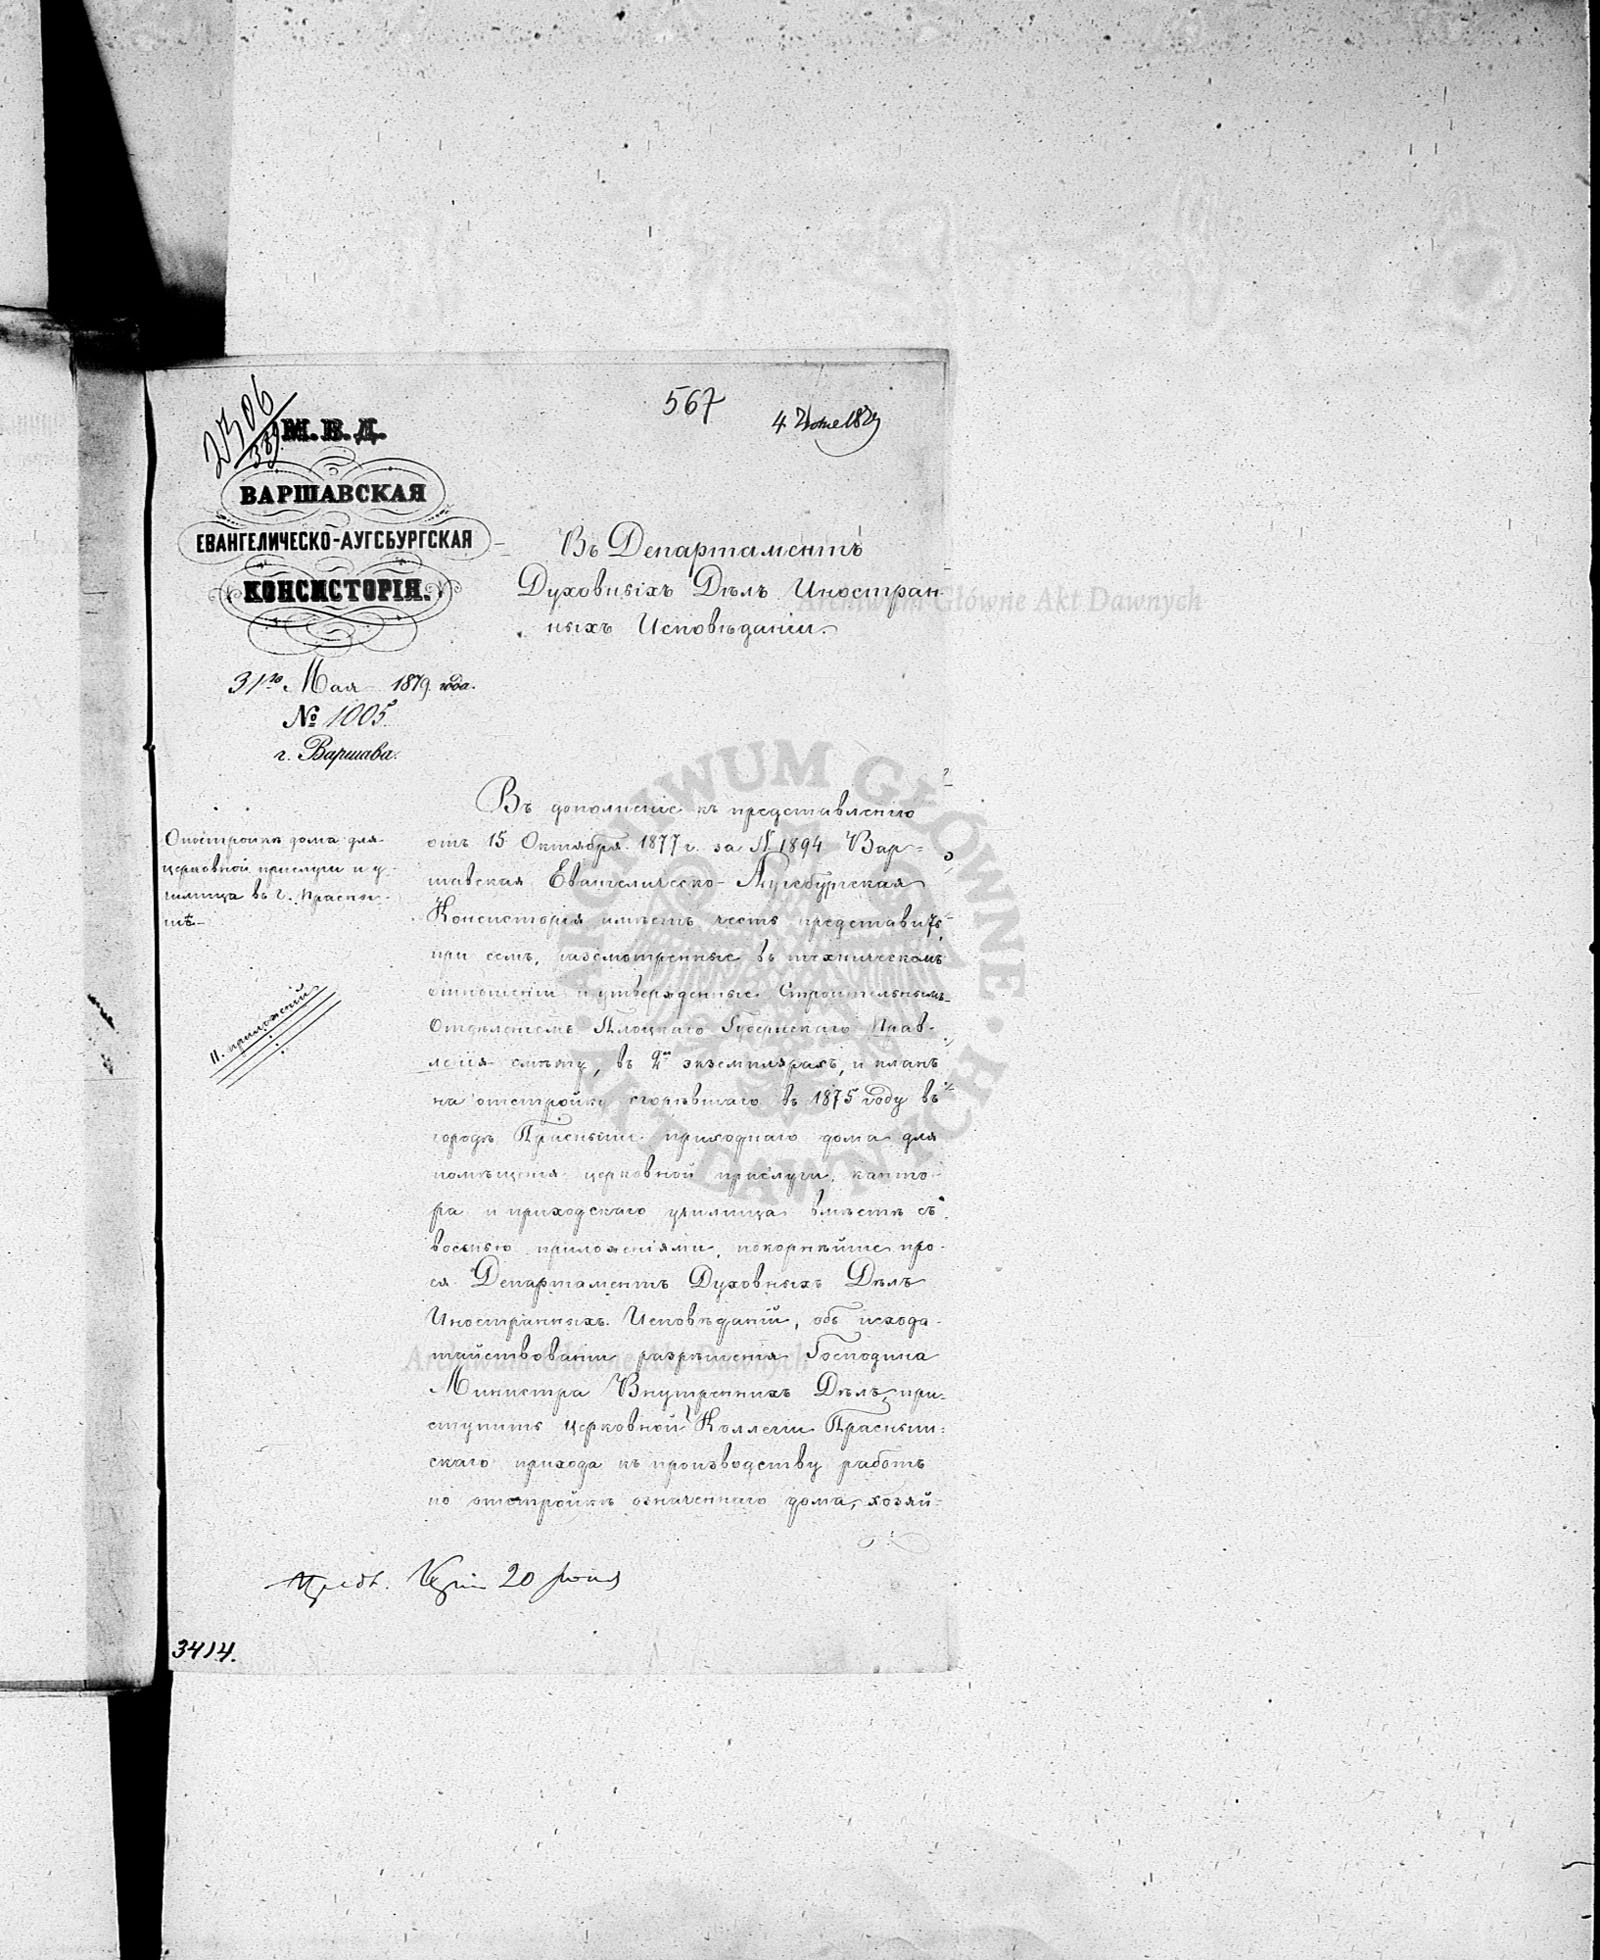 567
4 Июне 1879
2306
339
М. В. Д.
ВАРШАВСКАЯ
ЕВАНГЕЛИЧЕСКО-АУГСБУРГСКАЯ
КОНСИСТОРІЯ.
31го Мая 1879 года.
№ 1005
г. Варшава.
Въ Департаментъ
Духовныхъ Дѣлъ Иностран
ныхъ Исповѣданій.
О постройкѣ дома для
церковной прислуги и у-
чилища въ г. Прасны-
шѣ
11. приложеній
Въ дополненіе къ представленію
отъ 15 Октября 1877 г. за № 1894 Вар=
шавская Евангелическо-Аугсбургская
Консисторія имѣетъ честь представить
при семъ, разсмотренные въ техническомъ
отношеніи и утвержденные Строительнымъ
Отдѣленіемъ Плоцкаго Губернскаго Прав-
ленія смѣту, въ 2хъ экземплярахъ, и планъ
на отстройку сгорѣвшаго въ 1875 году въ
городѣ Праснышѣ приходнаго дома для
помѣщенія церковной прислуги,канто-
ра и приходскаго училища вмѣстѣ съ
восемью приложеніями, покорнѣйше про-
ся Департаментъ Духовныхъ Дѣлъ
Иностранныхъ Исповѣданій, объ исхода-
тайствованіи разрѣшенія Господина
Министра Внутреннихъ Дѣлъ, при-
ступить церковной Коллегіи Прасныш=
скаго прихода къ производству работъ
по отстройкѣ означеннаго дома, хозяй=
20 Іюня
3414.
Archiwum Główne Akt Dawnych
ARCHIWUM GŁÓWNE AKT DAWNYCH
Archiwum Główne Akt Dawnych